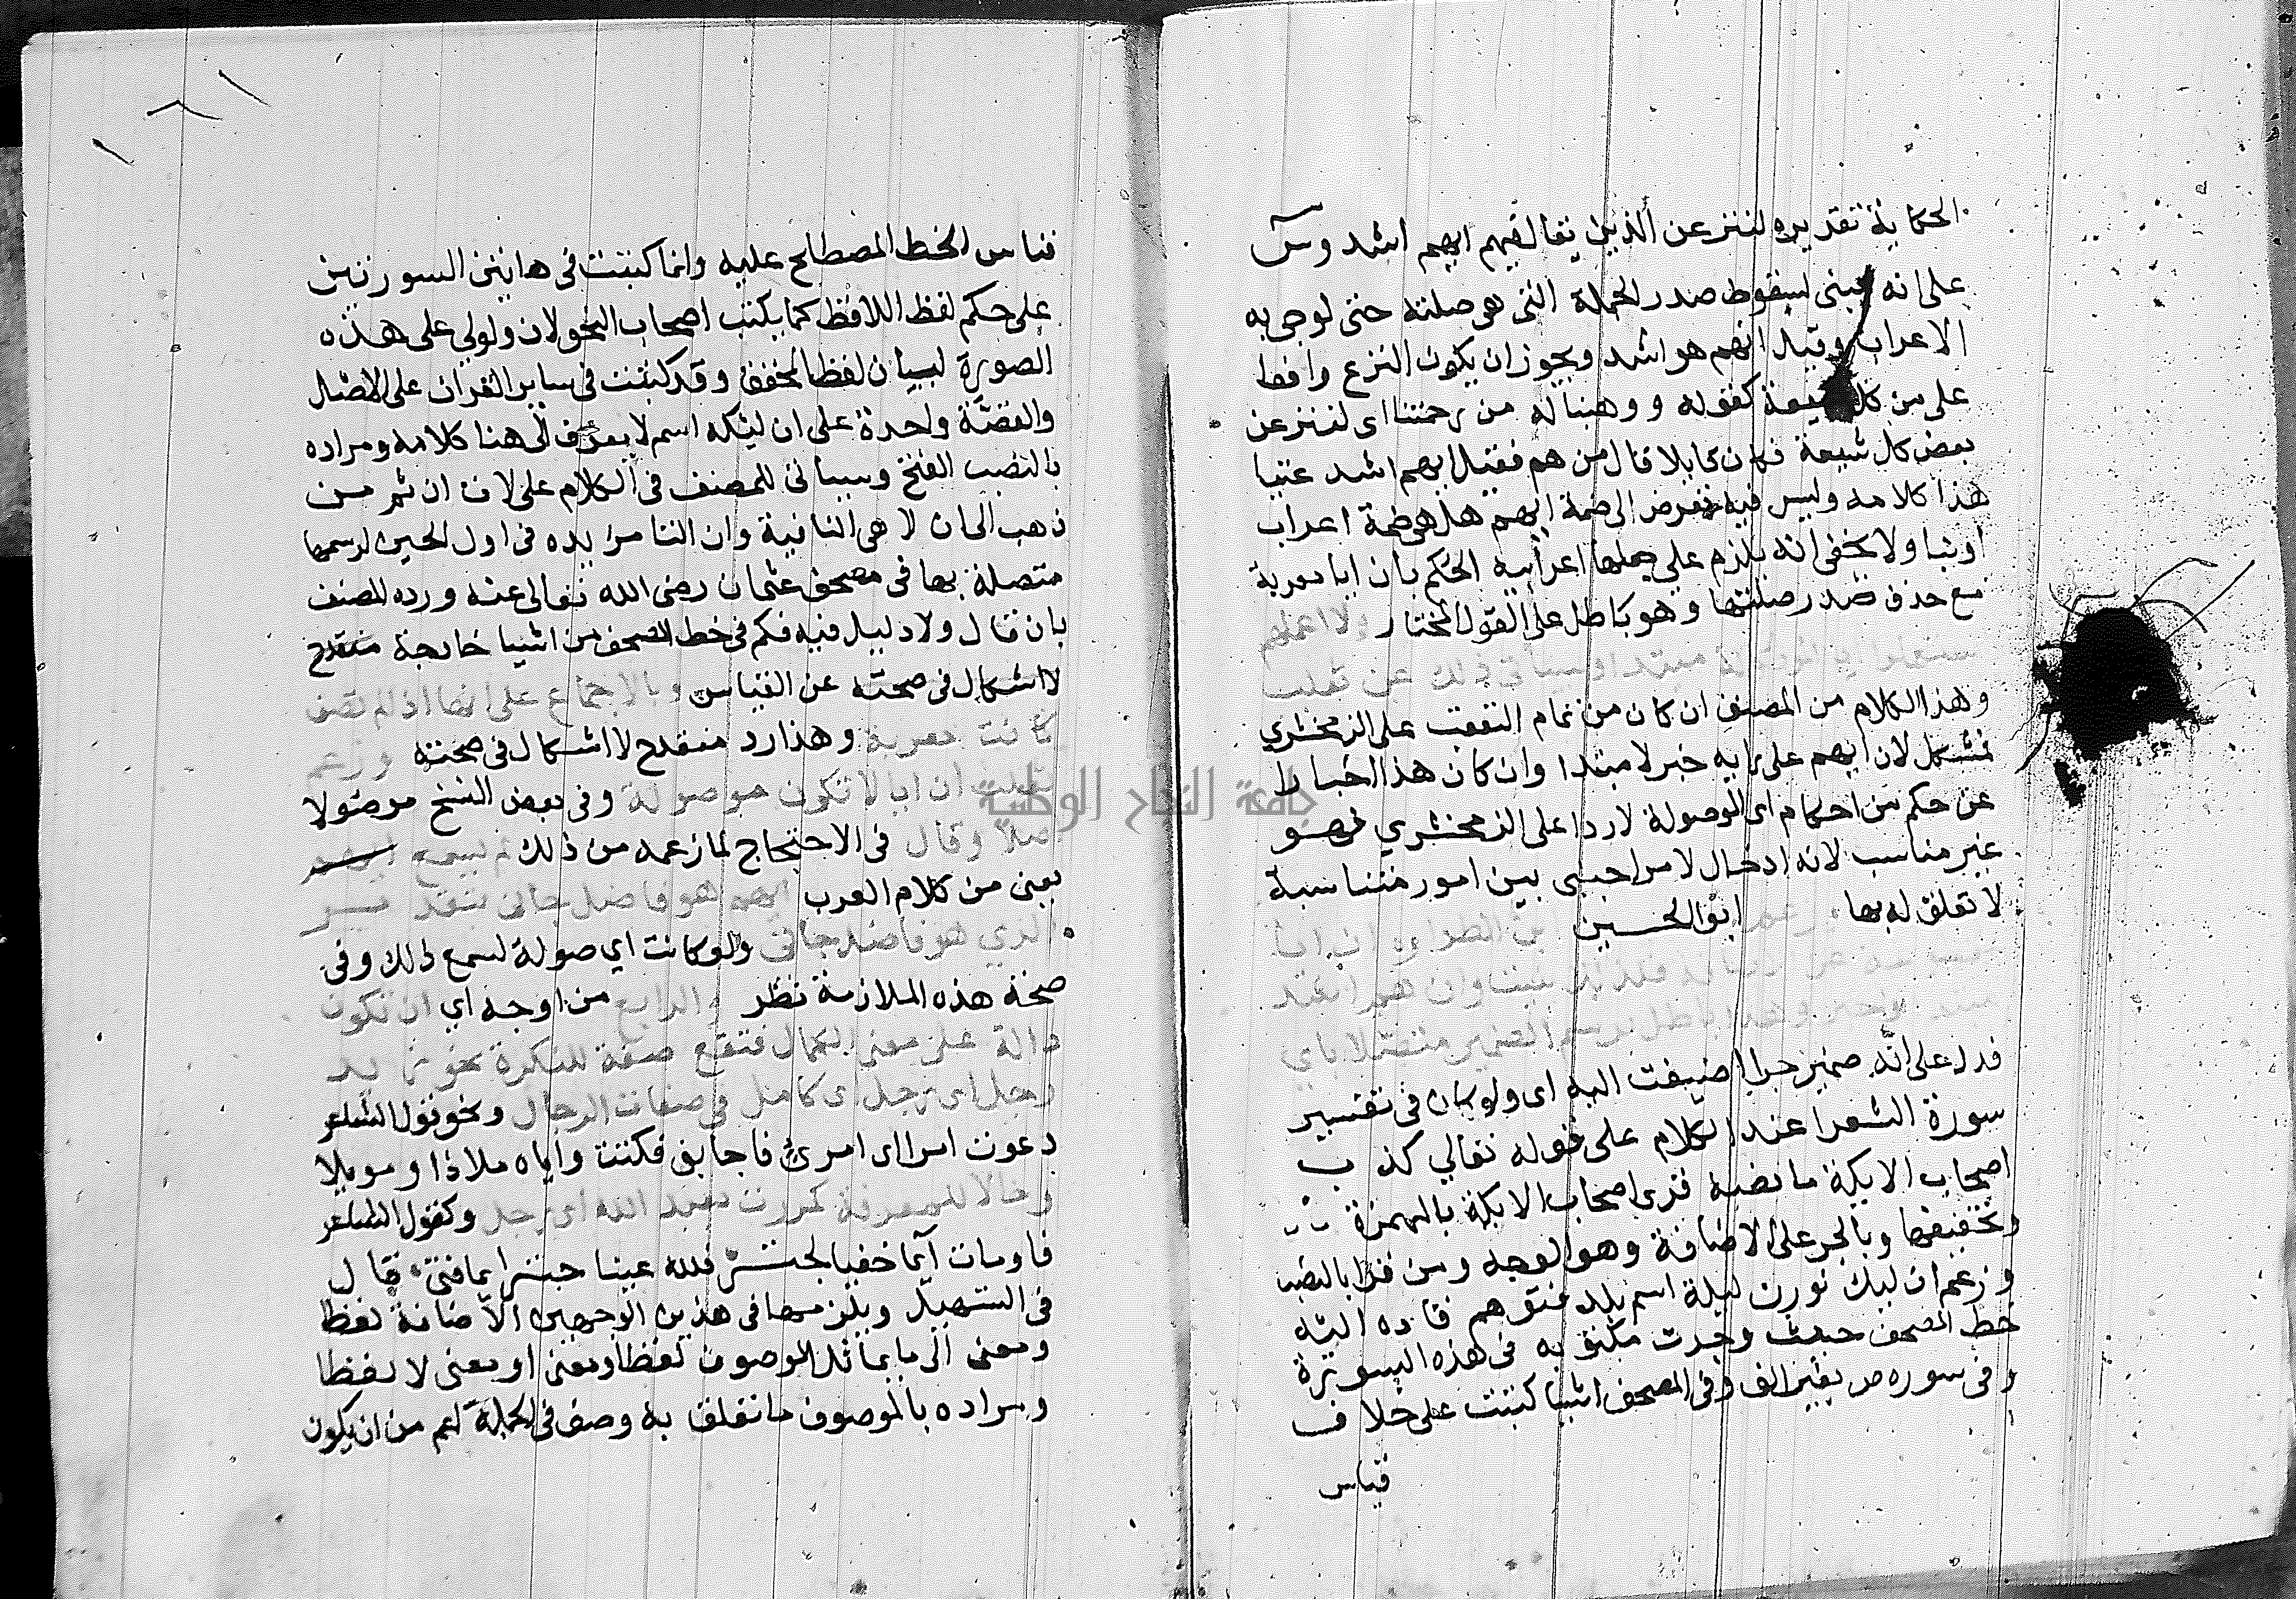 الحكاية تقديره لننزعن الذين يقال فيهم ايهم اشد وس
على انه مبنى لسقوط صدر الجملة التى هى صلته حتى لوجى به
الاعراب وقيل ايهم هو اشد ويجوز ان يكون النزع واقعا
على من كل شيعة كقوله ووهبنا له من رحمتنا اى لننزعن
بعض كل شيعة فكان قايلا قال من هم فقيل ايهم اشد عتيا
هذا كلامه وليس فيه تعرض الى ضمة ايهم هل هى ضمة اعراب
او بنا ولا يخفى انه يلزم على جعلها اعرابيه الحكم بان ايا معربة
مع حذف صدر صلتها وهو باطل على القول المختار ولا اعلمهم
مبتدا وسياتى ذلك عن ثعلب
وهذا الكلام من المصنف ان كان من تمام التعقب على الزمخشري
فمشكل لان ايهم على رايه خبر لا مبتدا وان كان هذا اخبارا
عن حكم من احكام اى الموصولة لا ردا على الزمخشري فهو
غير مناسب لانه ادخال لامر اجنبى بين امور متناسبة
لا تعلق له بها وزعم ابو الحسين ابن الطراوه ان ايا
عن الاضافة فلذلك بنيت وان هم اشد
مبتدا وخبر وهذا باطل برسم الضمير متصلا باي
فدل على انه ضمير جر اضيفت اليه اى ولو كان فى تفسير
سورة الشعرا عند الكلام على قوله تعالي كذب
اصحاب الايكة ما نصه قرى اصحاب الايكة بالهمزة
وتخفيفها وبالجر على الاضافة وهو الوجه ومن قرا بالنصب
وزعم ان ليك بوزن ليلة اسم بلد فتوهم قاده اليه
خط المصحف حيث وجدت مكتوبه فى هذه السورة
وفى سوره ص بغير الف وفى المصحف اشيا كتبت على خلاف
قياس
قياس الخط المصطلح عليه وانما كتبت فى هاتين السورتين
على حكم لفظ اللافظ كما يكتب اصحاب النحو لان ولولي على هذه
الصورة لبيان لفظ المخفف وقد كتبت فى ساير القران على الاصل
والقصة واحدة على ان ليكه اسم لا يعرف الى هنا كلامه ومراده
بالنصب الفتح وسياتى للمصنف فى الكلام على لات ان ثم من
ذهب الى ان لا هى النافية وان التا مزيده فى اول الحين لرسمها
متصلة بها فى مصحف عثمان رضى الله تعالى عنه ورده المصنف
بان قال ولا دليل فيه فكم فى خط المصحف من اشيا خارجة منقدح
لا اشكال فى صحته عن القياس وبالاجماع على انها اذا لم تضف
كانت معربة وهذا رد منقدح لا اشكال فى صحته وزعم
ثعلب ان ايا لا تكون موصولة وفى بعض النسخ موصولا
اصلا وقال فى الاحتجاج لما زعمه من ذلك لم يسمع ايهم
يعنى من كلام العرب ايهم هو فاضل جانى بتقدير
الذي هو فاضل جانى ولو كانت اي صولة لسمع ذلك وفى
صحة هذه الملازمة نظر والرابع من اوجه اي ان تكون
دالة على معنى الكمال فتقع صفة للنكرة نحو زيد
رجل اى رجل اى كامل فى صفات الرجال ونحو قول الشاعر
دعوت امرا اى امرئ فاجابنى فكنت واياه ملاذا وموئلا
وحالا للمعرفة كمررت بعبد الله اى رجل وكقول الشاعر
فاومات آيما خفيا لحبتر فلله عينا حبتر ايما فتى قال
فى التسهيل ويلزمها فى هذين الوجهين الاضافة لفظا
ومعنى الى ما يماثل الموصوف لفظا ومعنى او معنى لا لفظا
ومراده بالموصوف ما تعلق به وصف فى الجملة اعم من ان يكون
جامعة النجاح الوطنية